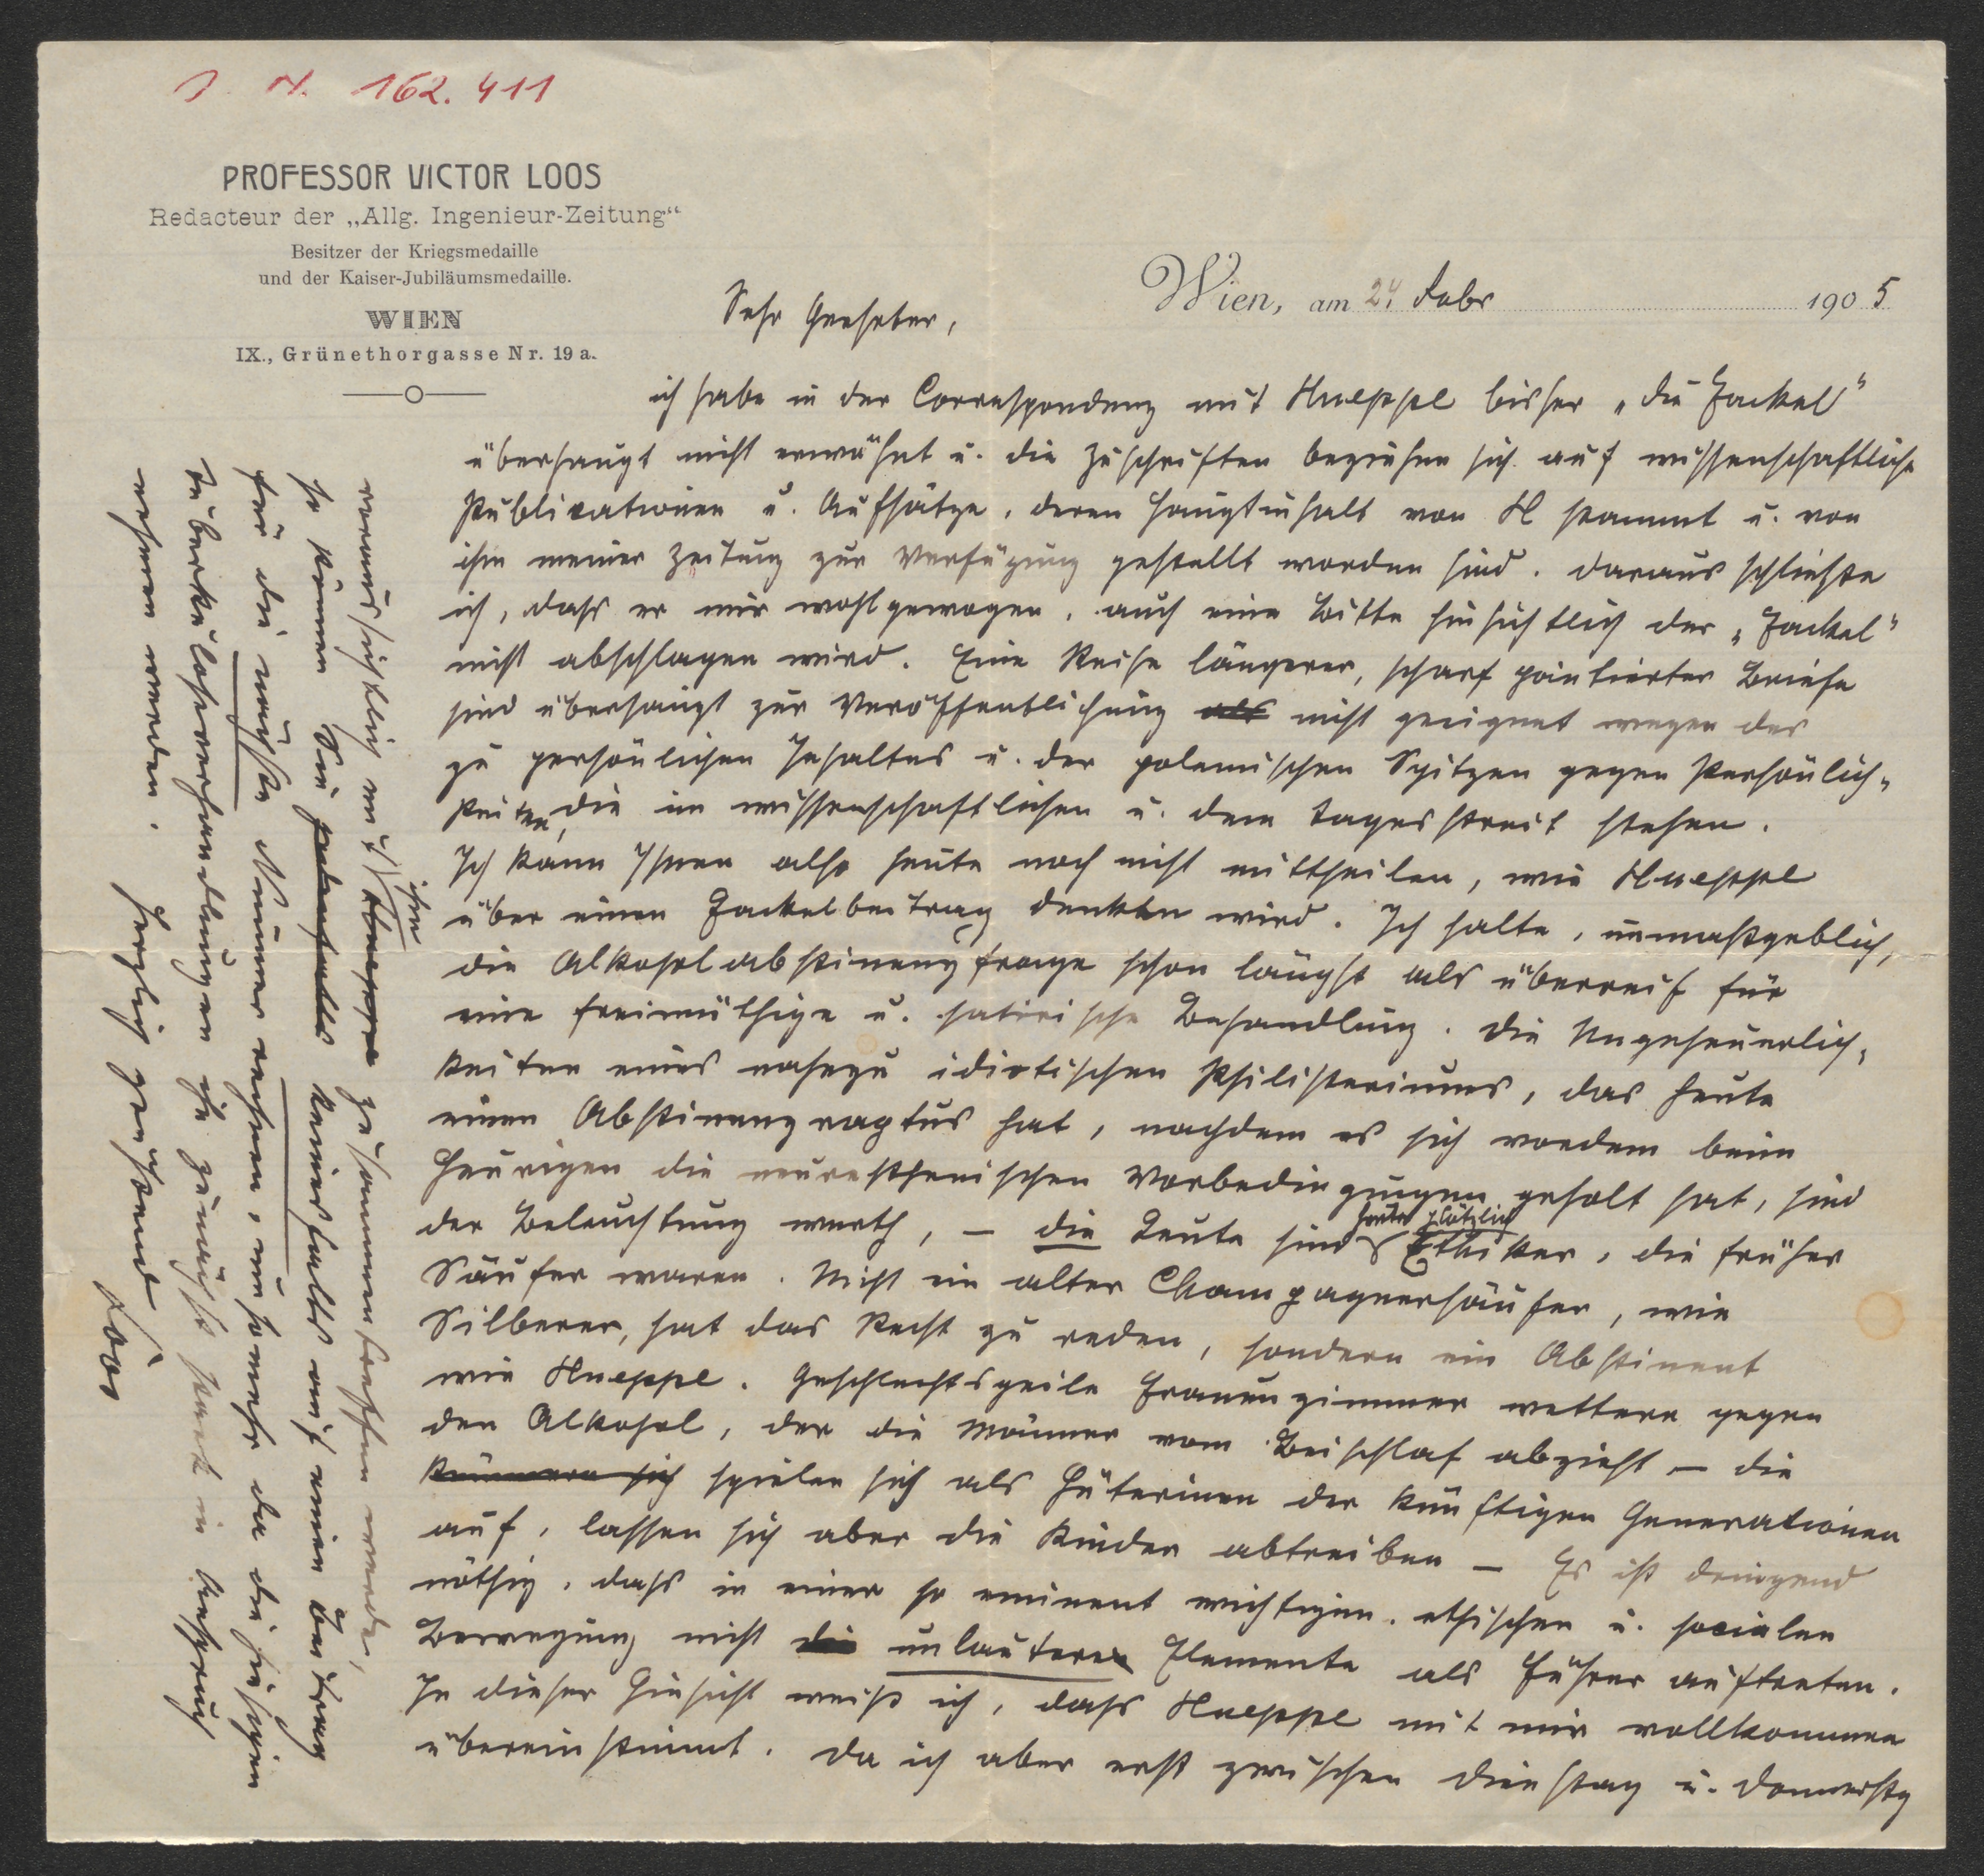 J. N. 162.411
PROFESSOR VICTOR LOOS
Redacteur der „Allg. Ingenieur-Zeitung“
Besitzer der Kriegsmedaille
und der Kaiser-Jubiläumsmedaille.
WIEN
IX., Grünethorgasse Nr. 19 a.
Wien, am 24 Febr 1905
Sehr Geehrter,
ich habe in der Correspondenz mit Hueppe bisher „die Fackel“
überhaupt nicht erwähnt u. die Zuschriften beziehen sich auf wissenschaftliche
Publicationen u. Aufsätze, deren Hauptinhalt von H stammt u. von
ihm meiner Zeitung zur Verfügung gestellt worden sind. Daraus schließe
ich, dass er mir wohlgewogen, auch eine Bitte hinsichtlich der „Fackel“
nicht abschlagen wird. Eine Reihe längerer, scharf pointierter Briefe
sind überhaupt zur Veröffentlichung als nicht geeignet wegen des
zu persönlichen Inhaltes u. der polemischen Spitzen gegen Persönlich-
keiten, die im wissenschaftlichen u. dem Tagesstreit stehen.
Ich kann Ihnen also heute noch nicht mittheilen, wie Hueppe
über einen Fackelbeitrag denken wird. Ich halte, unmaßgeblich,
die Alkoholabstinenzfrage schon längst als überreif für
eine freimüthige u. satirische Behandlung. Die Ungeheuerlich-
keiten eines nahezu idiotischen Philisteriums, das heute
einen Abstinenzraptus hat, nachdem es sich vordem beim
Heurigen die neurasthenischen Vorbedingungen geholt hat, sind
der Beleuchtung werth, – die Leute sind heute plötzlich Ethiker, die früher
Säufer waren. Nicht ein alter Champagnersäufer, wie
Silberer, hat das Recht zu reden, sondern ein Abstinent
wie Hueppe. Geschlechtsgeile Frauenzimmer wettern gegen
den Alkohol, der die Männer vom Beischlaf abzieht – die
kümmern sich spielen sich als Hüterinen der künftigen Generationen
auf, lassen sich aber die Kinder abtreiben – Es ist dringend
nöthig, dass in einer so eminent wichtigen, ethischen u. socialen
Bewegung nicht die unlautere Elemente als Führer auftreten.
In dieser Hinsicht weiß ich, dass Hueppe mit mir vollkommen
übereinstimmt. Da ich aber erst zwischen Dienstag u. Donnerstg
voraussichtlich mit Hueppe ihm zusammentreffen werde,
so können Sie jedenfalls keinesfalls auf einen Beitrag
für die nächste Nummer rechnen, umsomehr da die hiesigen
Tuberkuloseverhandlungen ihn zunächst stark in Anspruch
nehmen werden.
Herzlich grüßend
Loos